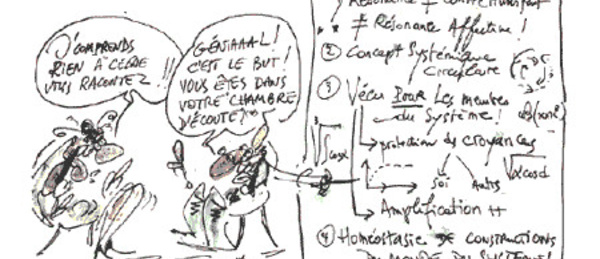 J'COMPRENDS
RIEN À CE QUE
VOUS RACONTEZ !!
GÉNIAAAL !
C'EST LE BUT !
VOUS ÊTES DANS
VOTRE "CHAMBRE
D'ÉCOUTE" !
Résonance ≠ contretransfert
≠ Résonance Affective !
② Concept Systémique
Circulaire
③ Vécu POUR Les membres
du Système !
protection des croyances
Soi Autres
Amplification ++
④ Homéostasie CONSTRUCTIONS
DU MONDE DU SYSTÈME !